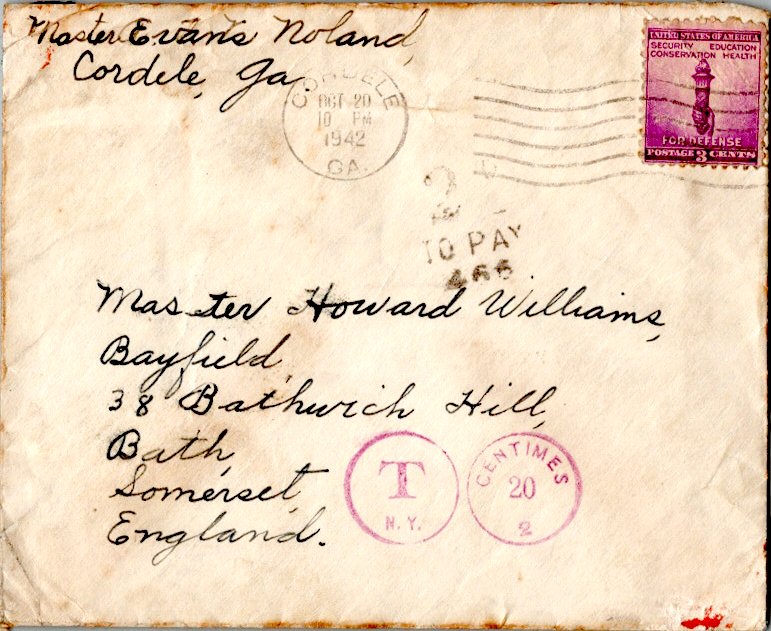 Master Evans Noland,
Cordele, Ga.
CORDELE
OCT 20
10 PM
1942
GA.
UNITED STATES OF AMERICA
SECURITY EDUCATION
CONSERVATION HEALTH
FOR DEFENSE
POSTAGE 3 CENTS
TO PAY
466
Master Howard Williams,
Bayfield,
38 Bathwich Hill,
Bath,
Somerset,
England.
T
N.Y.
CENTIMES
20
2